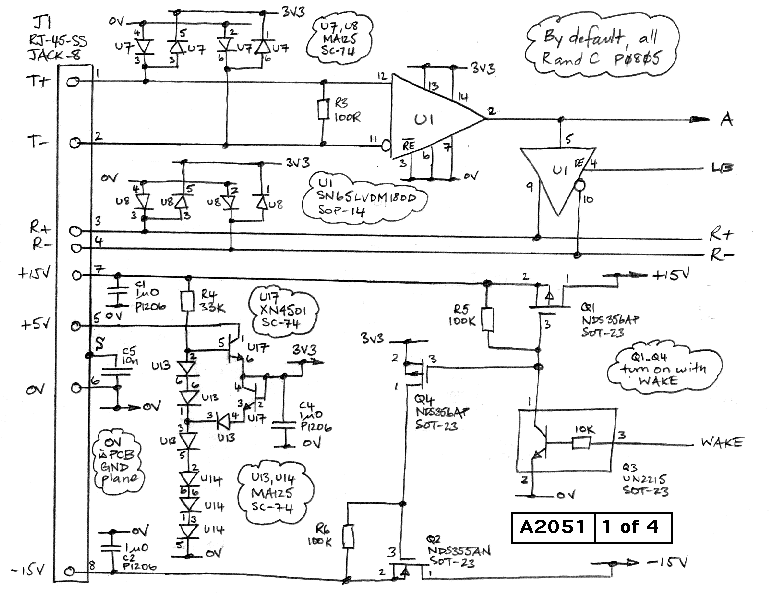 J1
RJ-45-SS
JACK-8
0V
3V3
U7, U8
MA125
SC-74
By default, all
R and C P0805
4
5
2
1
U7
U7
U7
U7
3
3
6
6
T+
1
12
3V3
13
14
R3
100R
U1
2
A
T-
2
11
RE
3
6
7
0V
5
U1
RE
4
LB
9
10
3V3
0V
4
5
2
1
U8
U8
U8
U8
3
3
6
6
U1
SN65LVDM180D
SOP-14
R+
3
R+
R-
4
R-
+15V
7
C1
1µ0
P1206
0V
R4
33K
U17
XN4501
SC-74
R5
100K
2
1
3
Q1
NDS356AP
SOT-23
+15V
+5V
5
S
C5
10n
U17
5
6
3V3
3V3
2
3
1
Q4
NDS356AP
SOT-23
Q1-Q4
turn on with
WAKE
U13
2
6
U13
1
3
U13
5
4
3
2
U17
3
4
U13
C4
1µ0
P1206
0V
0V
6
0V
0V
is PCB
GND
plane
1
10K
3
WAKE
2
Q3
UN2215
SOT-23
0V
U13, U14
MA125
SC-74
2
6
U14
U14
1
3
U14
5
0V
0V
1µ0
C2
P1206
R6
100K
A2051
1 of 4
Q2
NDS355AN
SOT-23
3
2
1
-15V
8
-15V